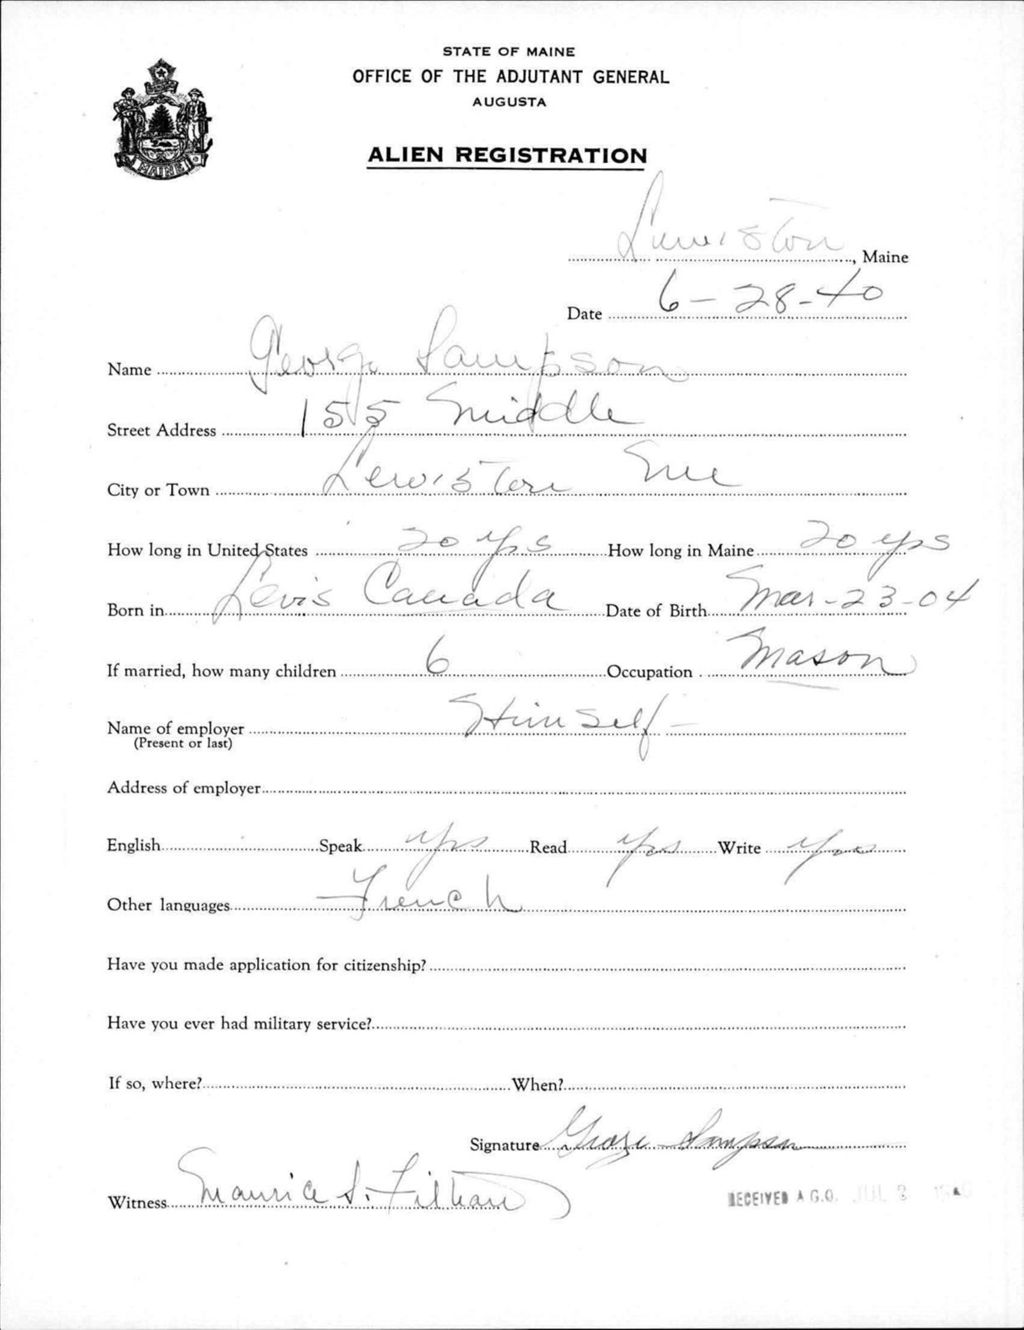 STATE OF MAINE
OFFICE OF THE ADJUTANT GENERAL
AUGUSTA
ALIEN REGISTRATION
MAINE
Lewiston, Maine
Date 6-28-40
Name George Sampson
Street Address 155 Middle
City or Town Lewiston Me
How long in United States 20 yrs How long in Maine 20 yrs
Born in Levis Canada Date of Birth Mar-23-04
If married, how many children 6 Occupation Mason
Name of employer Himself-
(Present or last)
Address of employer
English Speak yes Read yes Write yes
Other languages French
Have you made application for citizenship?
Have you ever had military service?
If so, where? When?
Signature George Sampson
Witness Maurice S.
RECEIVED A.G.O. JUL 2